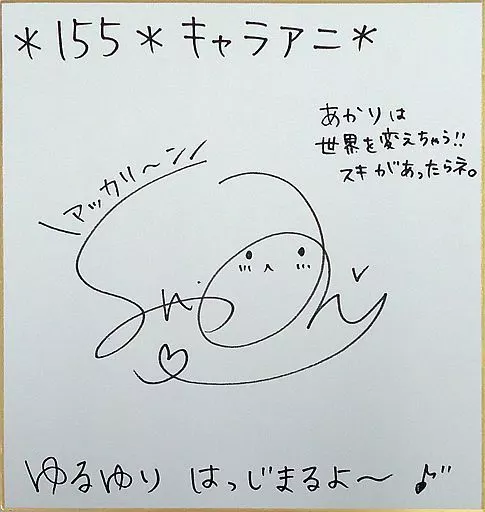 *155*キャラアニ*
あかりは
世界を変えちゃう!!
スキがあったらネ。
\アッカリ〜ン/
ゆるゆり はっじまるよ〜♪"